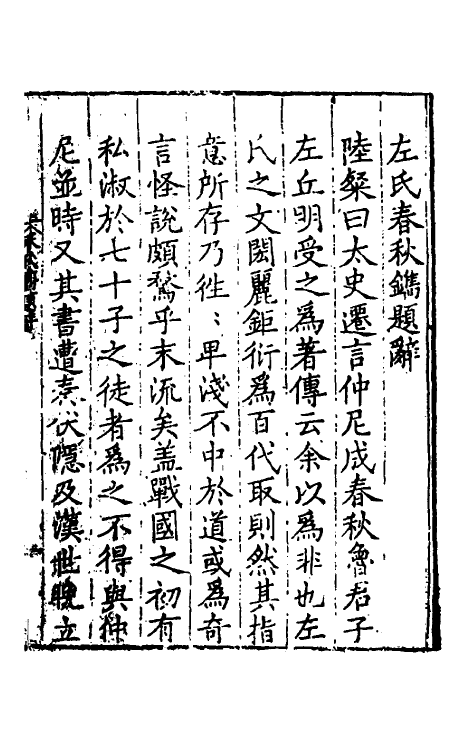 左氏春秋鐫題辭
陸粲曰太史遷言仲尼成春秋魯君子
左丘明受之爲著傳云余以爲非也左
氏之文閎麗鉅衍爲百代取則然其指
意所存乃徃〻卑淺不中於道或爲奇
言怪說頗騖乎末流矣盖戰國之初有
私淑於七十子之徒者爲之不得與仲
尼並時又其書遭秦伏隱及漢世晚立